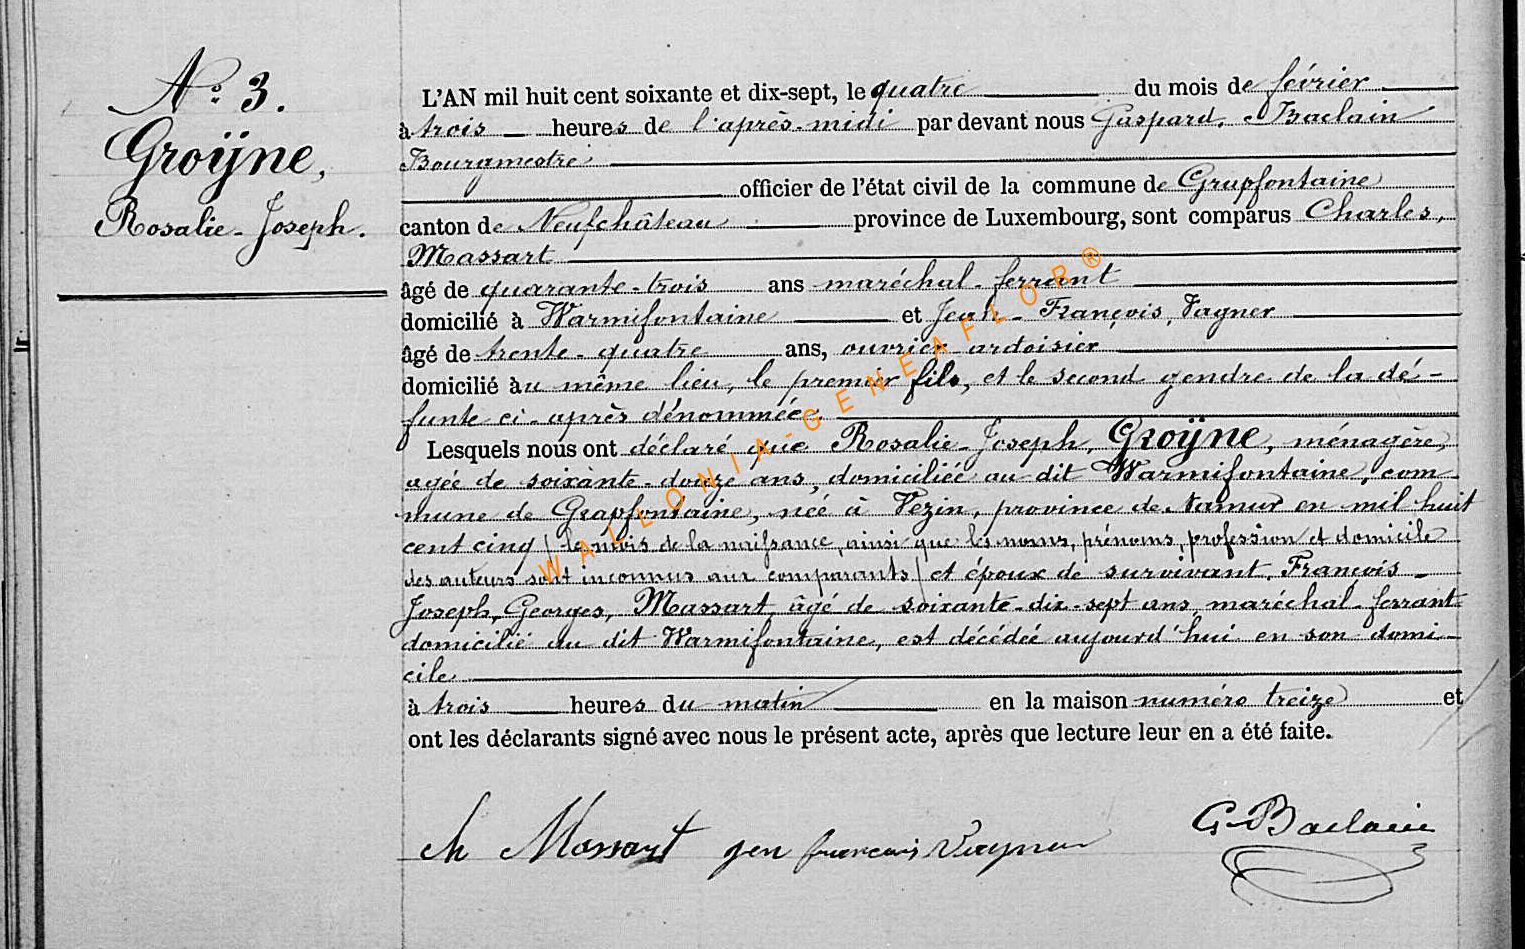 N° 3.
Groÿne,
Rosalie-Joseph.
L'AN mil huit cent soixante et dix-sept, le quatre du mois de février
à trois heures de l'après-midi par devant nous Gaspard, Baclain
Bourgmestre
officier de l'état civil de la commune de Grapfontaine
canton de Neufchâteau province de Luxembourg, sont comparus Charles,
Massart
âgé de quarante-trois ans maréchal-ferrant
domicilié à Warmifontaine et Jean-François, Vagner
âgé de trente-quatre ans, ouvrier ardoisier
domicilié au même lieu, le premier fils, et le second gendre de la dé-
funte ci-après dénommée.
Lesquels nous ont déclaré que Rosalie-Joseph, Groÿne, ménagère,
agée de soixante-douze ans, domiciliée au dit Warmifontaine, com-
mune de Grapfontaine, née à Vezin, province de Namur en mil huit
cent cinq (le mois de la naissance, ainsi que les noms, prénoms, profession et domicile
des auteurs sont inconnus aux comparants) et époux de survivant, François-
Joseph, Georges, Massart, âgé de soixante-dix-sept ans, maréchal-ferrant
domicilié au dit Warmifontaine, est décédée aujourd'hui en son domi-
cile
à trois heures du matin en la maison numéro treize et
ont les déclarants signé avec nous le présent acte, après que lecture leur en a été faite.
ch Massart jen francois Vagner G. Baclain
WALLONIA-GENEAFLOR®